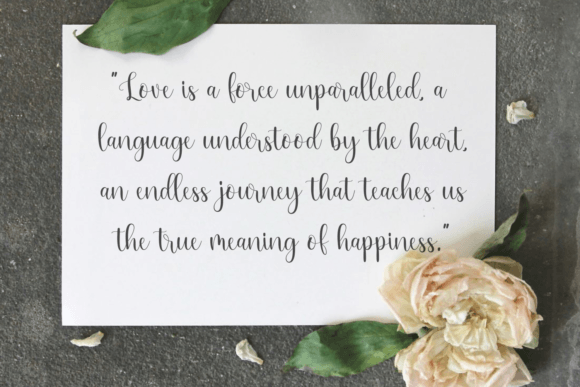 "Love is a force unparalleled, a
language understood by the heart,
an endless journey that teaches us
the true meaning of happiness."